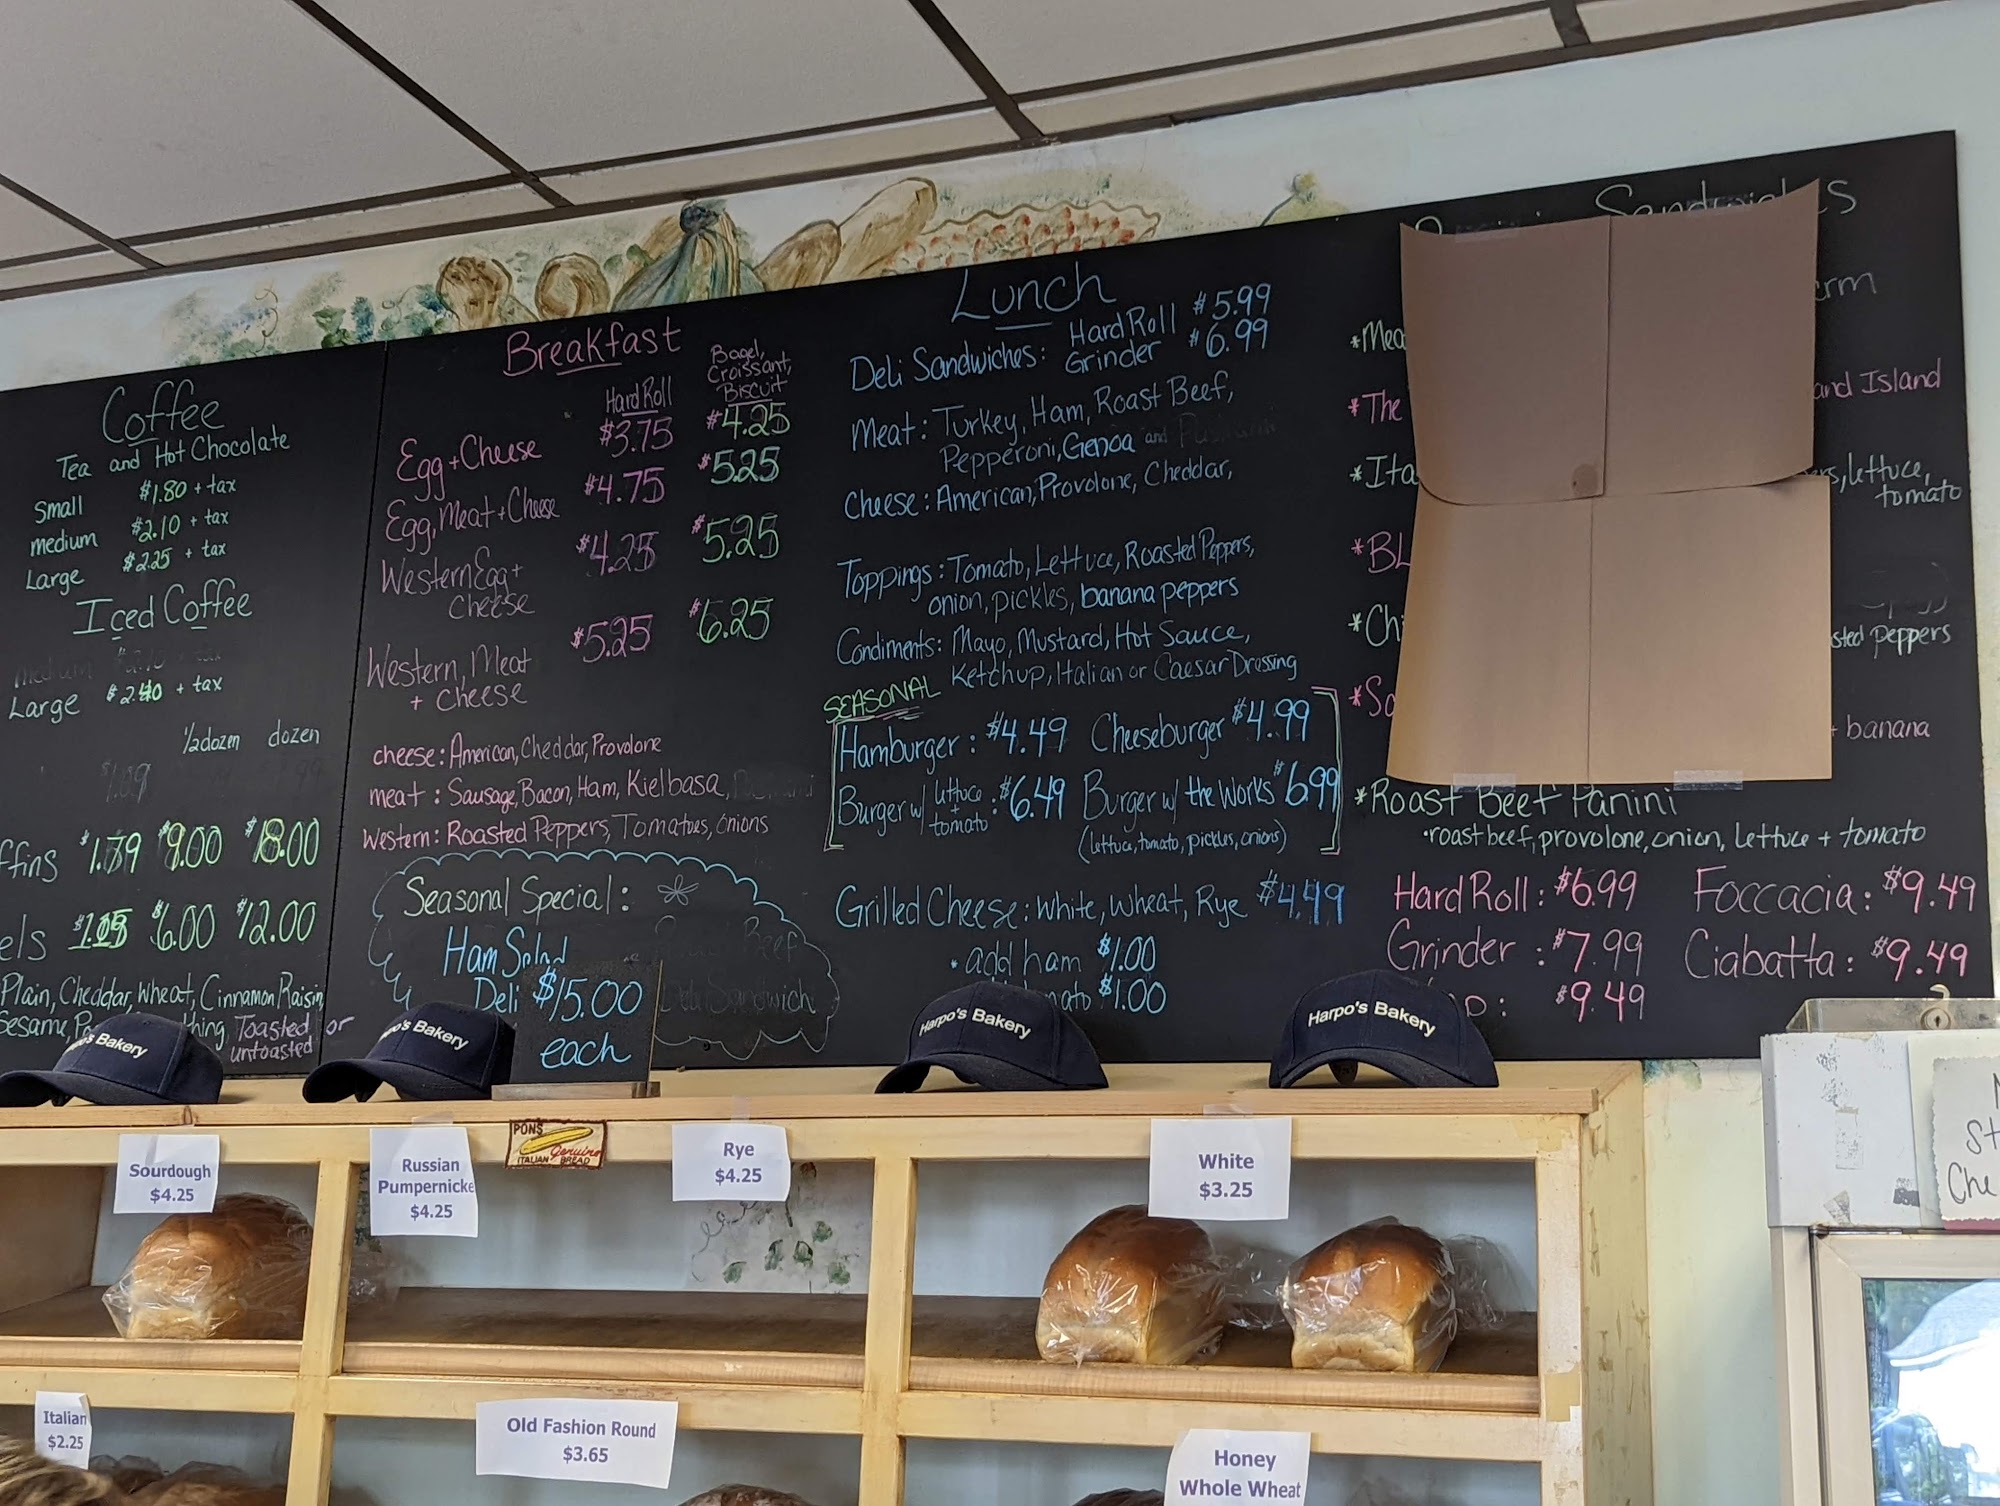 Coffee
Tea and Hot Chocolate
Small $1.80 + tax
medium $2.10 + tax
Large $2.25 + tax
Iced Coffee
medium $2.10 + tax
Large $2.40 + tax
1/2 dozen dozen
$1.09
ffins $1.79 $9.00 $18.00
els $6.00 $12.00
Plain, Cheddar, wheat, Cinnamon Raisin
Sesame, thing, Toasted or
untoasted
Breakfast
Hard Roll
Bagel,
Croissant,
Biscuit
Egg + Cheese $3.75 $4.25
Egg, Meat + Cheese $4.75 $5.25
Western Egg + $4.25 $5.25
Cheese
Western, Meat $5.25 $6.25
+ cheese
cheese: American, Cheddar, Provolone
meat: Sausage, Bacon, Ham, Kielbasa,
Western: Roasted Peppers, Tomatoes, onions
Seasonal Special:
Ham Salad
Deli
Beef
Deli Sandwich
$15.00
each
Lunch
Deli Sandwiches: Hard Roll $5.99
Grinder $6.99
Meat: Turkey, Ham, Roast Beef,
Pepperoni, Genoa and
Cheese: American, Provolone, Cheddar,
Toppings: Tomato, Lettuce, Roasted Peppers,
onion, pickles, banana peppers
Condiments: Mayo, Mustard, Hot Sauce,
Ketchup, Italian or Caesar Dressing
SEASONAL
Hamburger: $4.49 Cheeseburger $4.99
Burger w/ lettuce + tomato: $6.49 Burger w/ the Works $6.99
(lettuce, tomato, pickles, onions)
Grilled Cheese: White, Wheat, Rye $4.49
• add ham $1.00
mato $1.00
Sandwiches
arm
*Mea
*The and Island
*Ita rs, lettuce,
tomato
*BL
*Chi sted peppers
*So + banana
*Roast Beef Panini
• roast beef, provolone, onion, lettuce + tomato
Hard Roll: $6.99 Foccacia: $9.49
Grinder: $7.99 Ciabatta: $9.49
p: $9.49
Harpo's Bakery
Harpo's Bakery
Harpo's Bakery
Harpo's Bakery
Sourdough
$4.25
Russian
Pumpernicke
$4.25
PONS
Genuine
ITALIAN BREAD
Rye
$4.25
White
$3.25
Italian
$2.25
Old Fashion Round
$3.65
Honey
Whole Wheat
St
Che